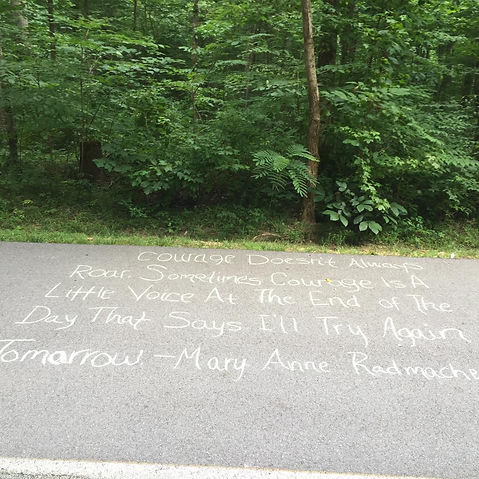 Courage Doesn't Always
Roar. Sometimes Courage Is A
Little Voice At The End of The
Day That Says I'll Try Again
Tomorrow. -Mary Anne Radmache